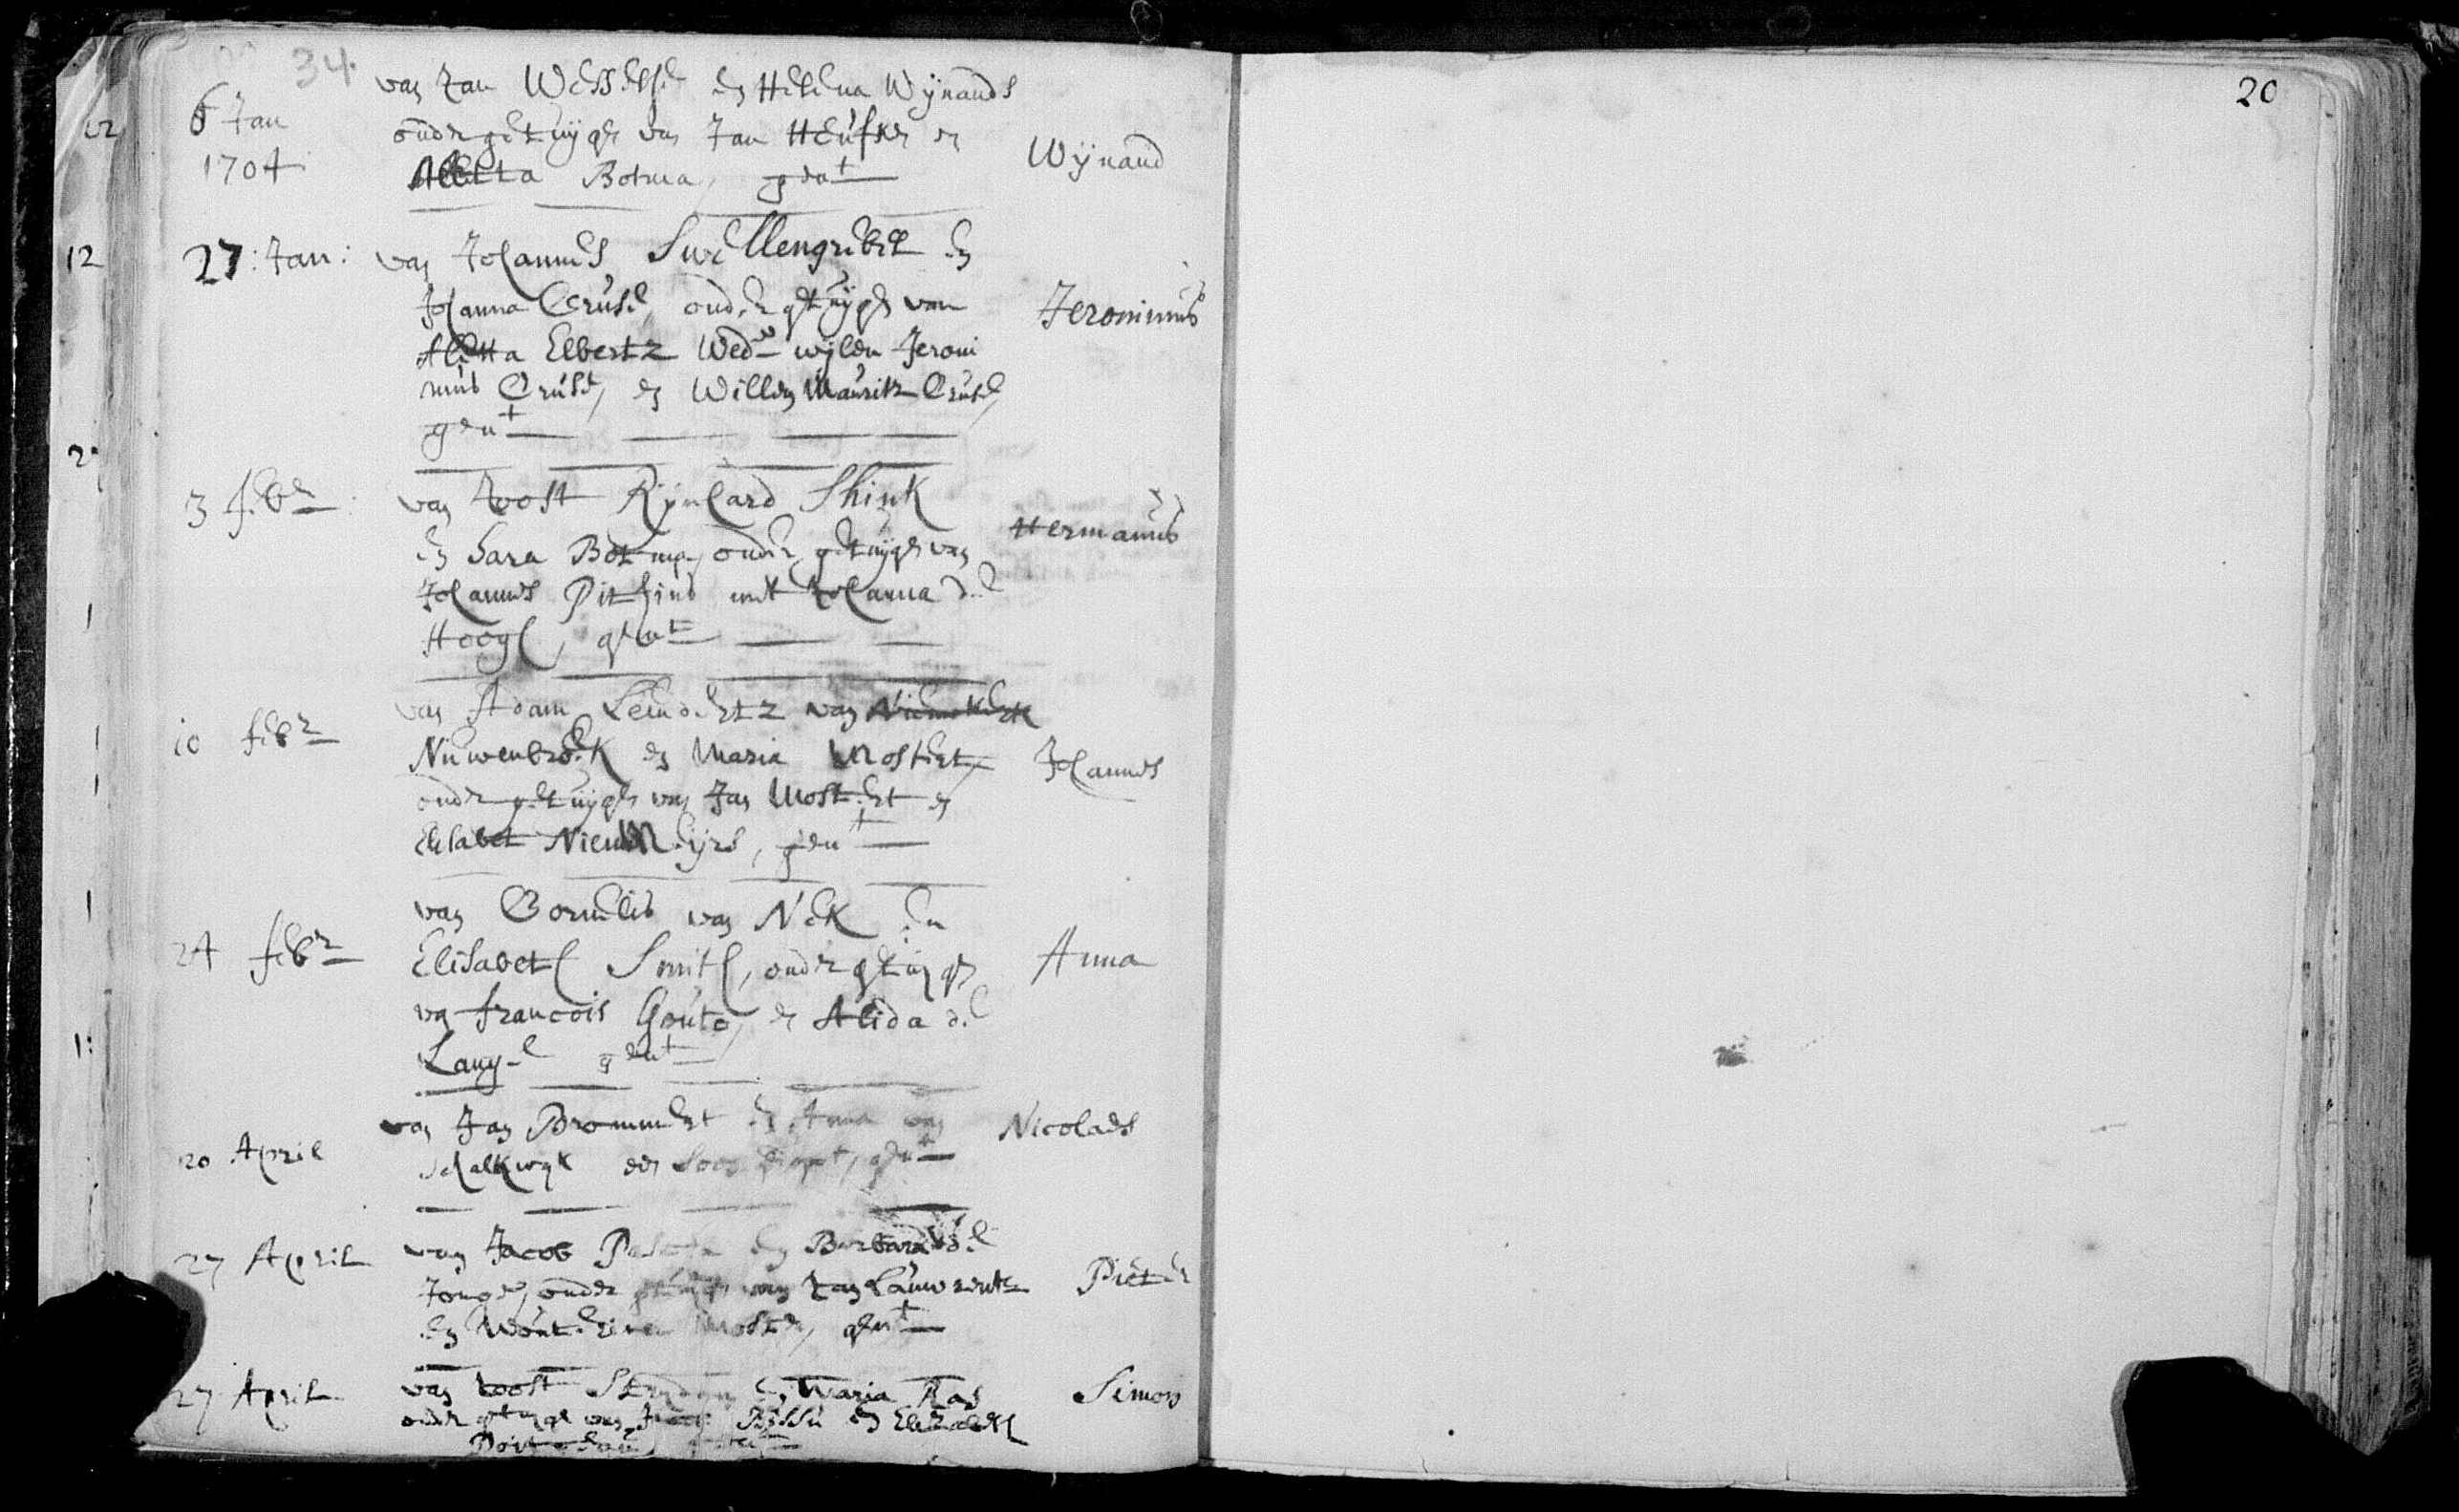 34.
6 Jan
1704
van Jan Wesselse en Helena Wÿnands
onder getuÿge van Jan Heufke en
Aletta Botma, gen.t
Wÿnand
27: Jan:
van Johannes Swellengrebel en
Johanna Cruse, onder getuÿge van
Aletta Elbertz Wed.w wijlen Jeroni
mus Cruse, en Willem Mauritz Cruse,
gen.t
Jeronimus
3 febr
van Joost Rÿnhard Shink
en Sara Botma, onder getuÿge van
Johannes Pithius met Johanna de
Hoogh, gen.t
Hermanus
10 febr
van Adam Leendertz van
Niuwenbroek en Maria Mostert,
onder getuÿge van Jan Mostert en
Elisabet, gen.t
Johannes
24 febr
van Cornelis van Nek en
Elisabeth Smith, onder getuige
van francois Gouto, en Alida de
Lange gen.t
Anna
20 April
van Jan Brommert en Anna van
Schalkwyk, gen.t
Nicolaes
27 April
van Jacob en Barbara de
Jonge, onder getuige van Jan Lauwrentz
en, gen.t
Pieter
27 April
van Joost en Maria Ras
onder getuige van en Elizabeth
Simon
20
12
12
2
1
1
1
1
1: